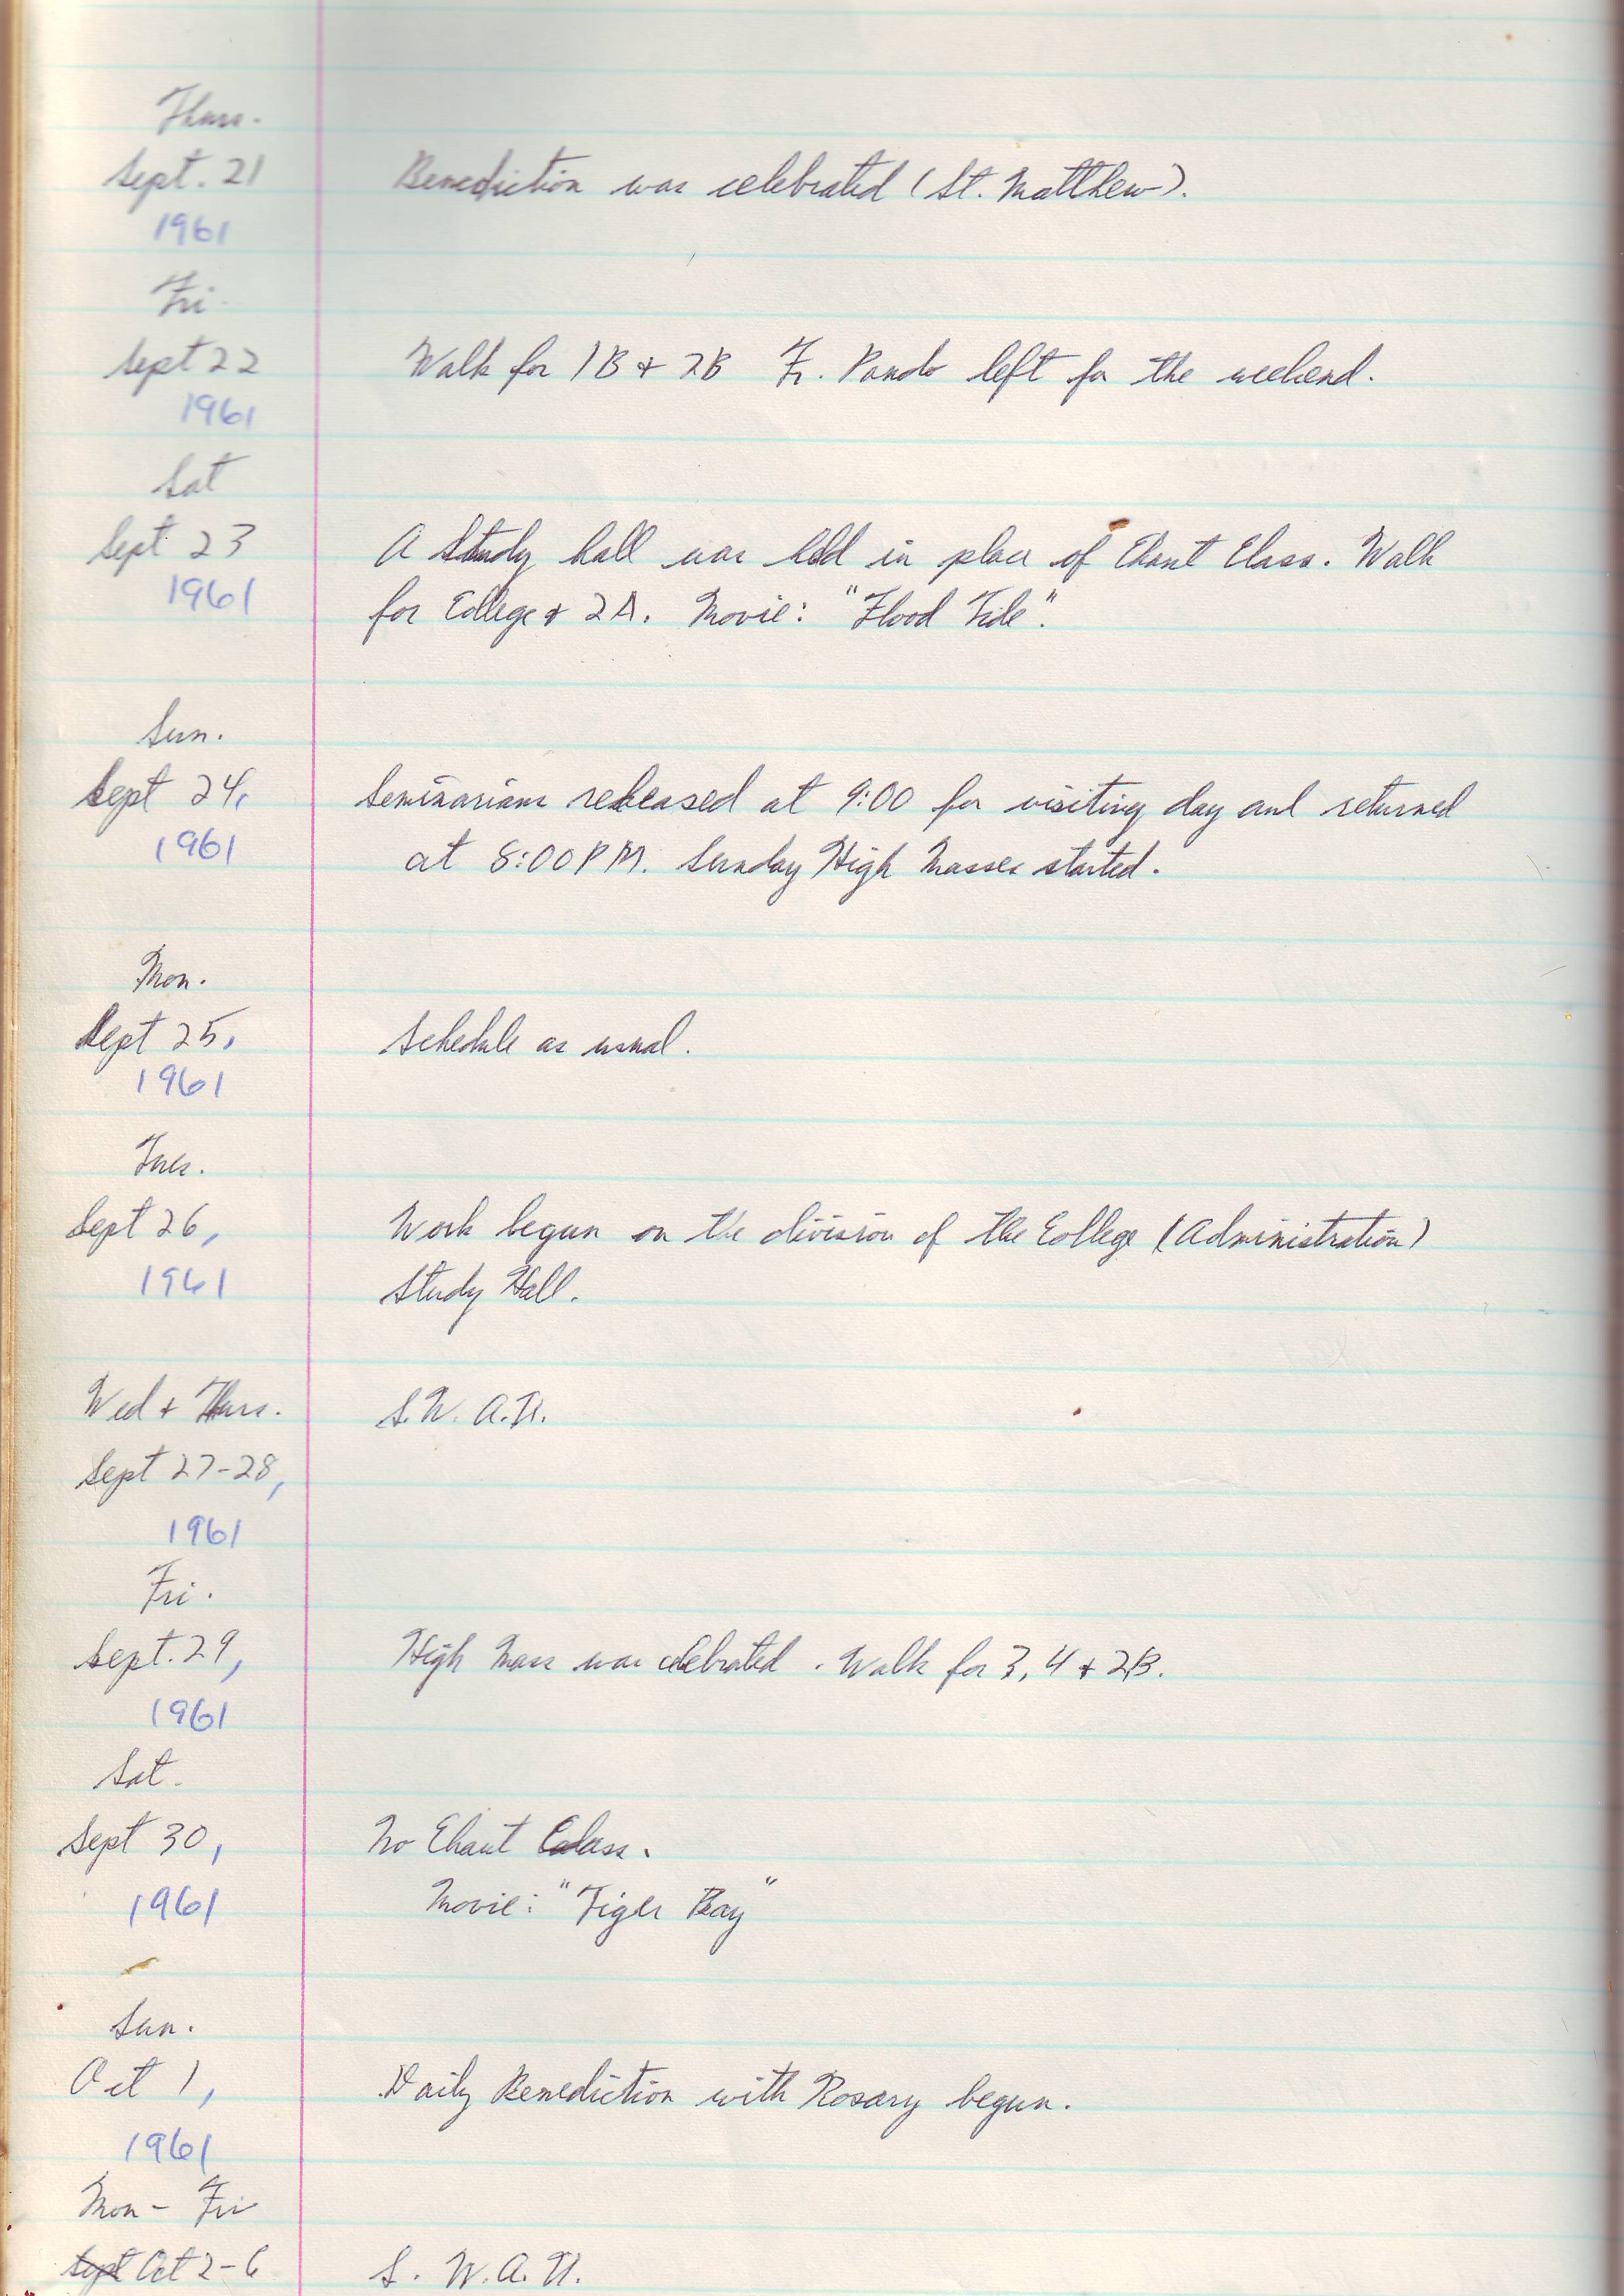 Thurs.
Sept. 21 Benediction was celebrated (St. Matthew).
1961
Fri.
Sept 22 Walk for 1B + 2B Fr. Pando left for the weekend.
1961
Sat
Sept 23 A Study hall was held in place of Chant Class. Walk
1961 for College + 2A. Movie: "Flood Tide".
Sun.
Sept 24, Seminarians released at 9:00 for visiting day and returned
1961 at 8:00 PM. Sunday High Masses started.
Mon.
Sept 25, Schedule as usual.
1961
Tues.
Sept 26, Work begun on the division of the College (Administration)
1961 Study Hall.
Wed + Thurs. S.W.A.U.
Sept 27-28,
1961
Fri.
Sept. 29, High Mass was celebrated. Walk for 3, 4 + 2B.
1961
Sat.
Sept 30, No Chant Class.
1961 Movie: "Tiger Bay"
Sun.
Oct 1, Daily Benediction with Rosary begun.
1961
Mon - Fri
Sept Oct 2-6 S.W.A.U.